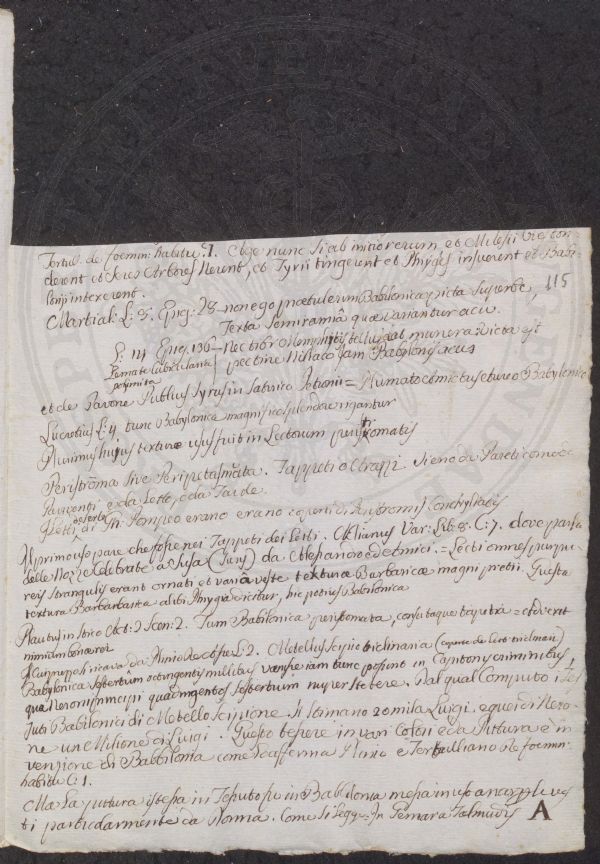 Tertul. de foemin: habitu. 1. Et ge nunc si ab initio rerum et Milesii oves ton
derent et Seres Arbores Nerent, et Tyrii tingerent et Phryges insuerent et Babi
lonij intexerent.
115
Martial: L: 8. Epig: 28 non ego praetulerim Babilonica picta superbe,
Texta Semiramia quae variantur acu.
L: 14 Epig. 136 Haec tibi Memphitis tellus dat munera: victa est
pectine Niliaco iam Babylonis acus
Permate cubiculariae
polymita
et de Pavone Publius Syrus in Satirico Petronii = Plumato amictus aureo Babylonico
Lucretius L: 4 tunc Babylonica magnifico splendore rigantur
Plurimus hujus texturae usus fuit in Lectorum peristromatis
Peristroma sive Peripetasmata. Tappeti o Strazzi. Sieno da Pareti come
Pavimenti e da Letto, o da Tavole
I Letti di Gn: Pompeo erano erano coperti di Peristromis Conchyliatis
Il primo uso pare che fosse nei Tappeti dei Letti. Aelianus Var: Lib: 8. C: 7. dove parla
delle Nozze celebrate a Susa da Alessandro ed Amici. = Lecti omnes purpu
reis stragulis erant ornati et varia veste texturae Barbaricae magni pretii. Questa
textura Barbarica alibi Phrygia dicitur, hic potius Babilonica
Plautus in Stico Act: 2 Scen: 2. Tum Babilonica peristromata, consutaque tapetia = advexit
nimium bonae rei
da Plinio L: 2. Metellus Scipio tricliniaria (coperte de Letti tricliniari)
Babylonica sestertium octingentis millibus venisse iam tunc posuit in Capitonis criminibus
quae Neroni principi quadringentis sestertium nuper stetere. Dal qual Computo i Tes
suti Babilonici di Metello Scipione si stimano 20 mila Luigi, e quei di Nero
ne un Milione di Luigi. Questo tessere in vari Colori e da Pittura è in
venzione di Babbilonia come s'afferma Plinio e Tertulliano De foemin:
habitu C: 1.
Ma La pittura istessa in Tessuto fu in Babilonia messa in uso
ti particularmente da Donna. Come si Legge In Gemara Talmudis
A